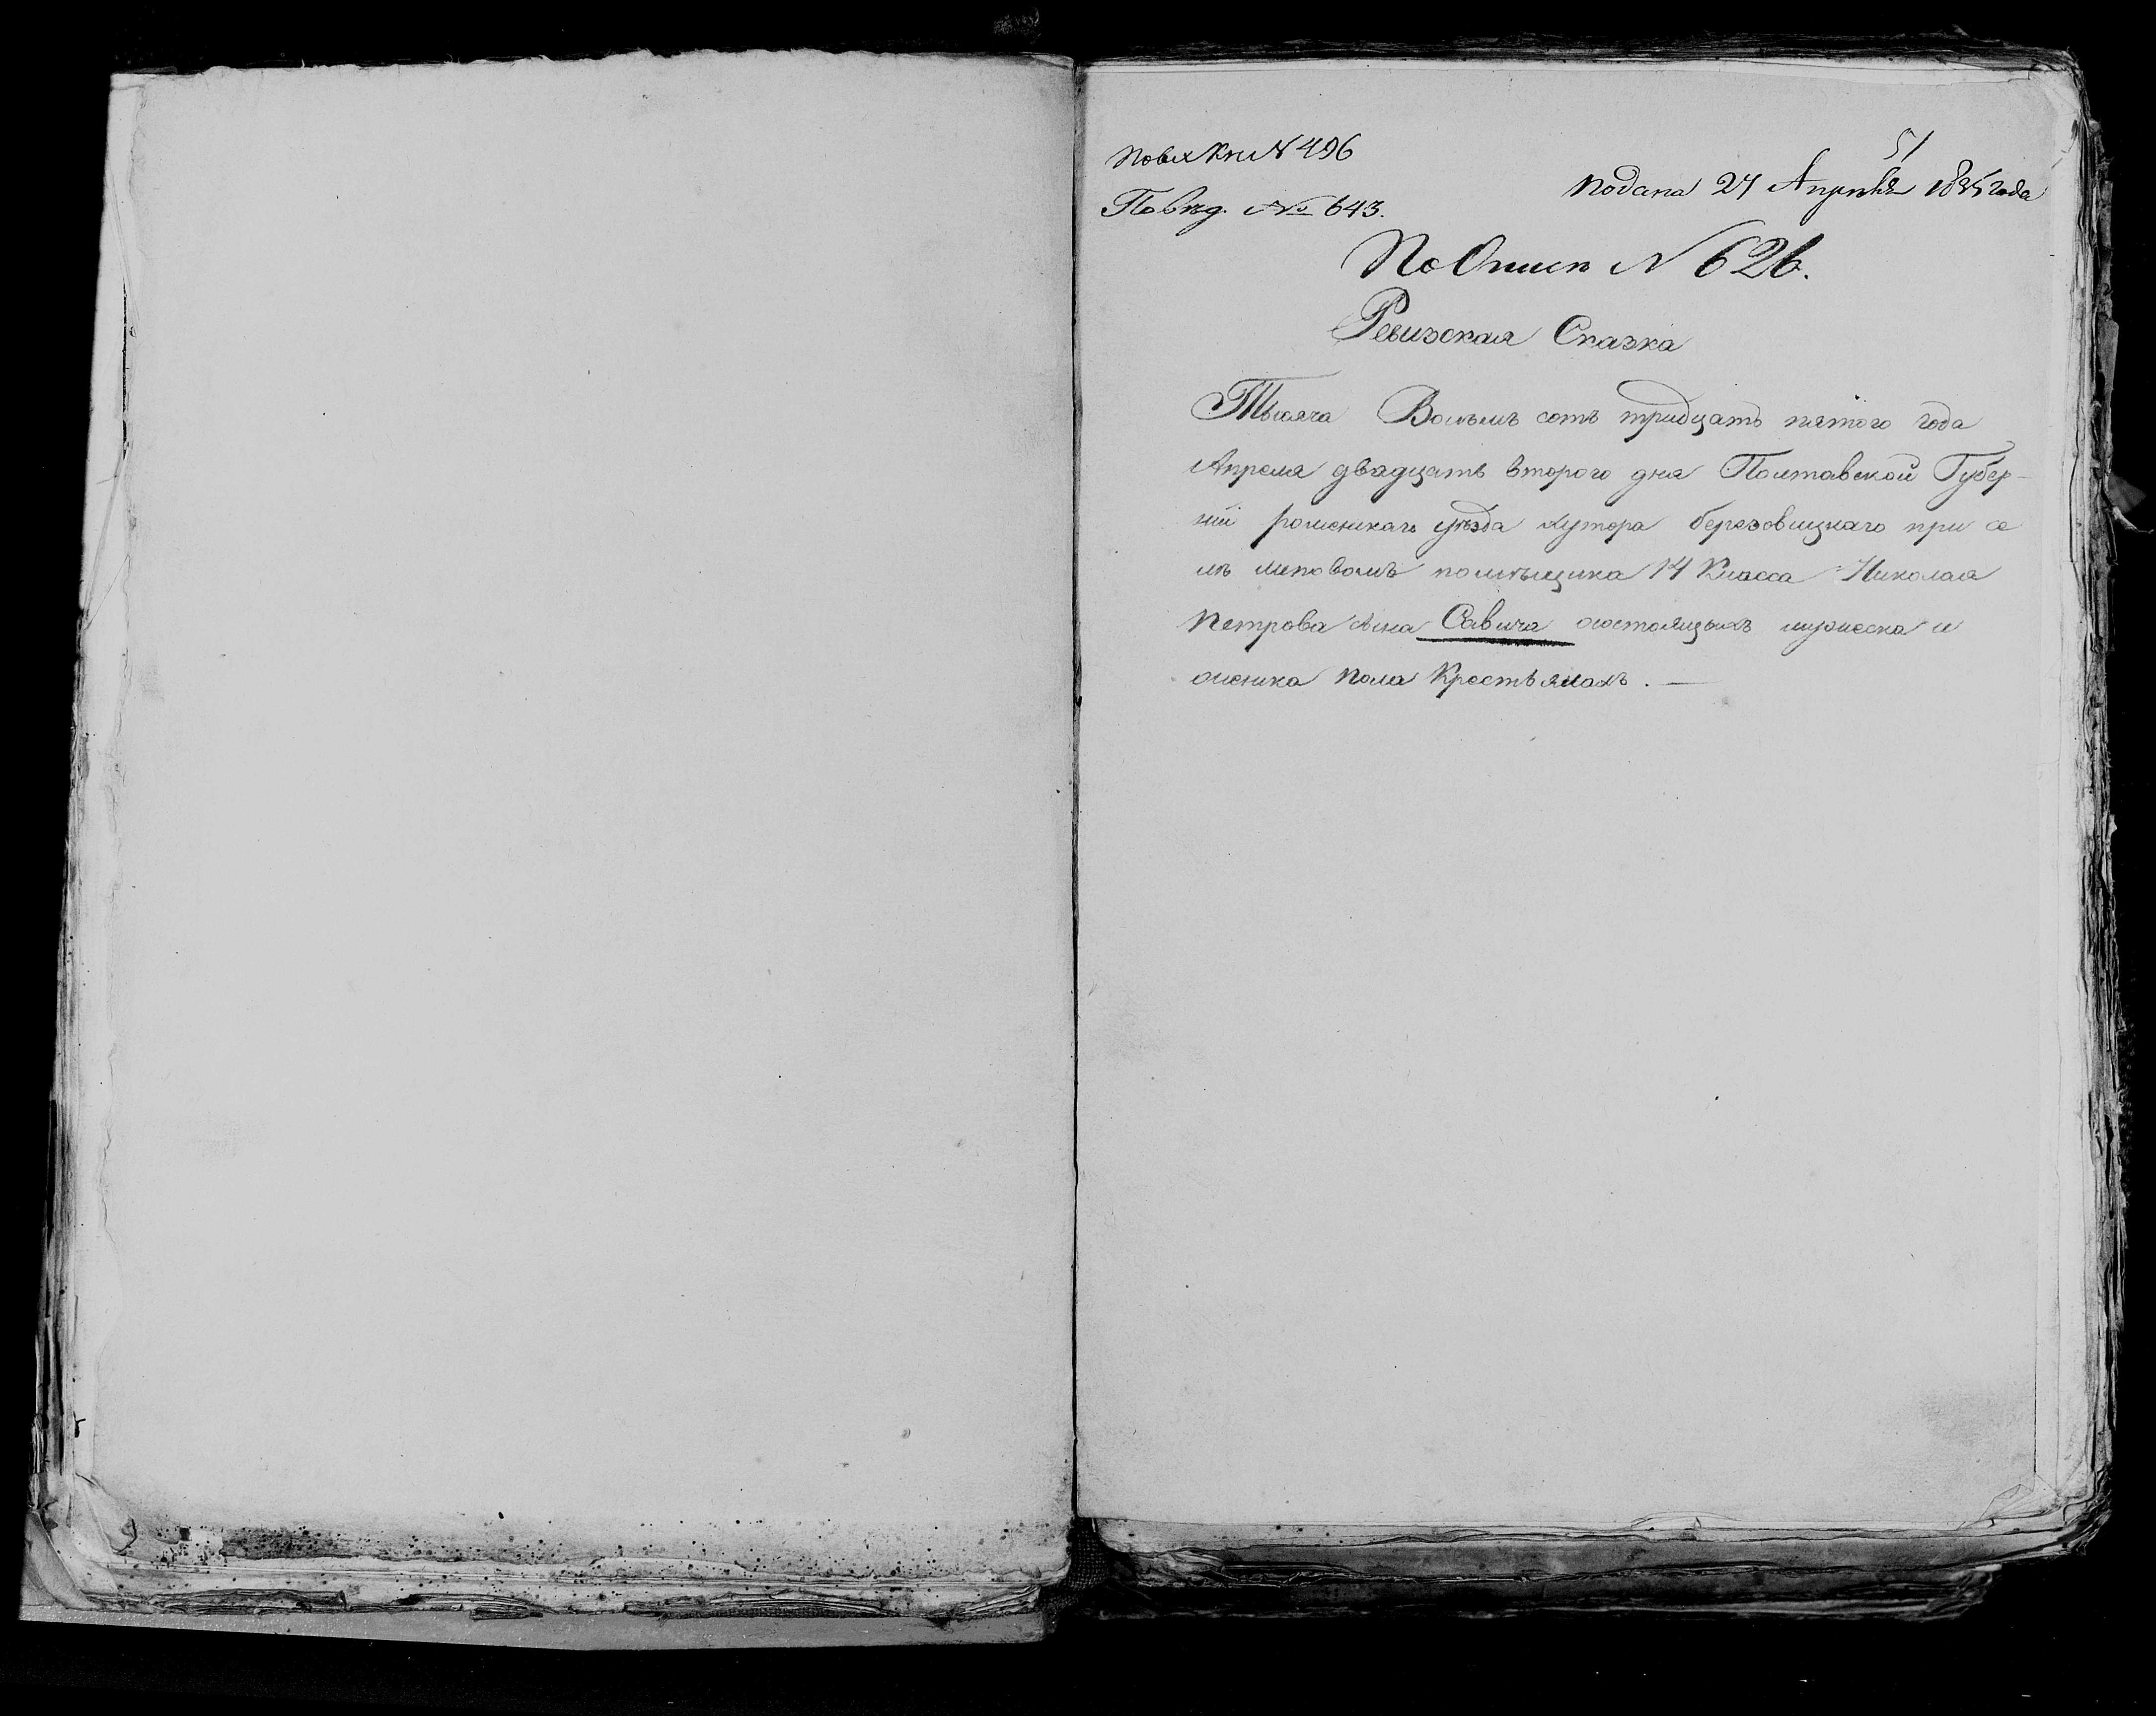 По вх Кни № 496
51
Подана 24 Апреля 1835 года
По вѣд. № 643.
По Описи № 626.
Ревизская Сказка
Тысяча Восѣмъ сотъ тридцать пятого года
Апреля двадцать второго дня Полтавской Губер-
нии роменскаго уѣзда хутора березовицкаго при се
лѣ липовомъ помѣщика 14 Класса Николая
Петрова сына Савича состоящихъ мужеска и
женска пола Крестьянахъ. —